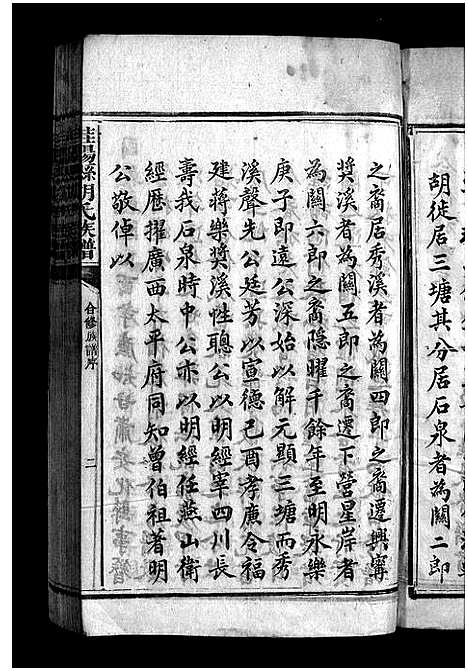 胡徒居三塘其分居石泉者為關二郎
之裔居秀溪者為關四郎之裔遷興寗
獎溪者為關五郎之裔遷下營星岸者
為關六郎之裔隱曜千餘年至明永樂
庚子即遠公深始以解元顯三塘而秀
溪聲先公廷芳以宣德己酉孝廉令福
建蔣樂獎溪性聰公以明經宰四川長
壽我石泉時中公亦以明經任燕山衛
經歷擢廣西太平府同知曾伯祖著明
公敬倬以
桂陽縣胡氏族譜
合修族譜序
二